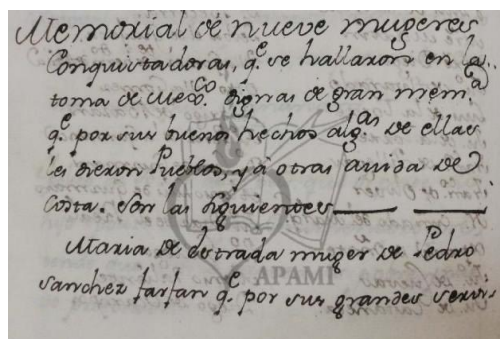 Memorial de nueve mugeres
Conquistadoras, q.e se hallaron en la
toma de Mexco. dignas de gran mem.a
q.e por sus buenos hechos alg.as de ellas
les dieron Pueblos, y à otras aiuda de
Costa. Son las siguientes
Maria de Estrada muger de Pedro
Sanchez farfan q.e por sus grandes servi-
APAMI